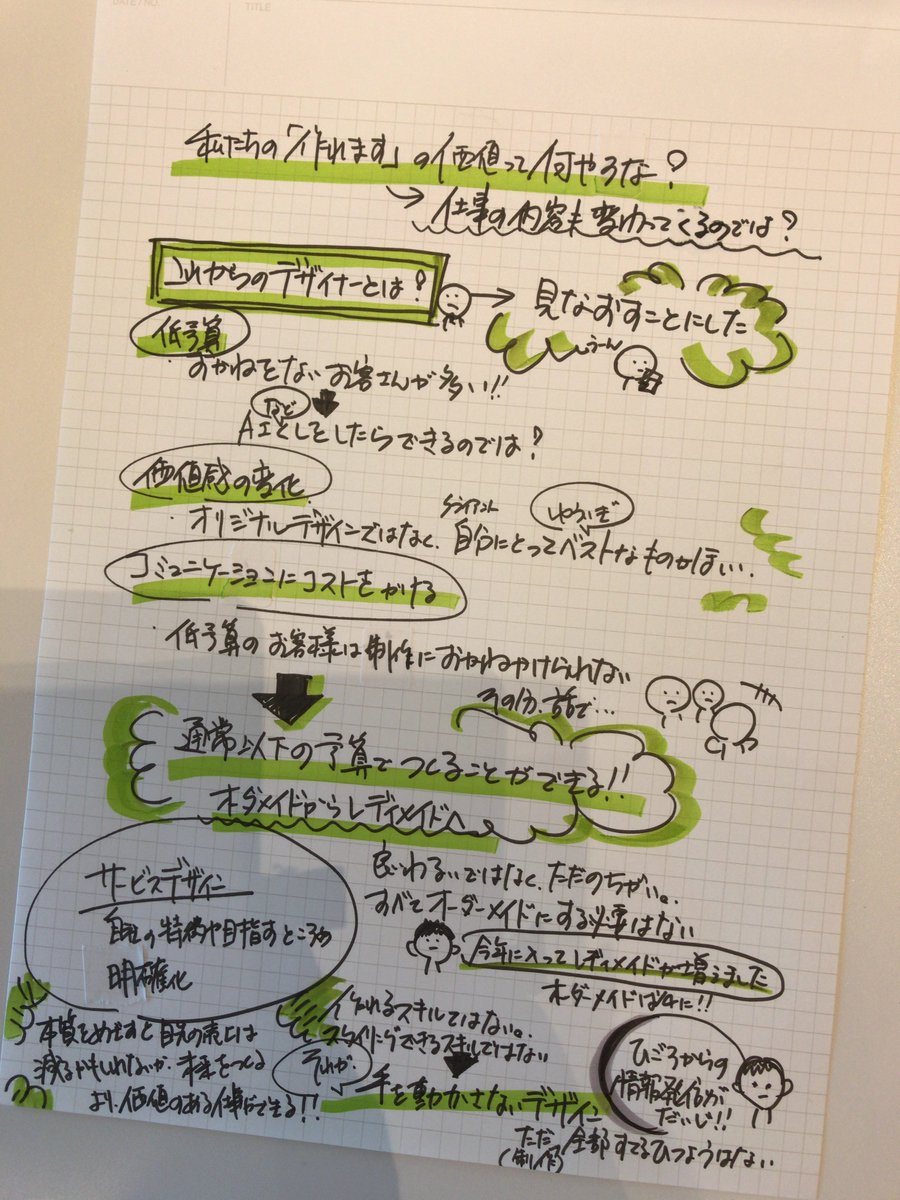 DATE / NO.
TITLE
私たちの「作れます」の価値って何やろな?
→仕事の内容も変わってくるのでは?
これからのデザイナーとは?
→見なおすことにした
うーん
低予算
・おかねをない お客さんが多い!!
など
AIとしをしたらできるのでは?
価値感の変化
クライアント
ゆういぎ
・オリジナルデザインではなく、自分にとってベストなものがほしい..
コミュニケーションにコストをかける
・低予算のお客様は制作におかねかけられない
その分、話で…
通常以下の予算でつくることができる!!
オダメイドからレディメイドへ
サービスデザイン
自社の特徴や目指すところの
明確化
良いわるいではなく、ただのちがい。
すべてオーダーメイドにする必要はない
今年に入ってレディメイドが増えました
オダメイドは
に!!
本質をめざすと目先の売上は
減るかもしれないが、未来をつくる
より価値のある仕事ができる!!
作れるスキルではない。
できるスキルではない
それが、
手を動かさないデザイン
ひごろからの
情報発信が
だいじ!!
ただ 全部すてるひつようはない
(制作)